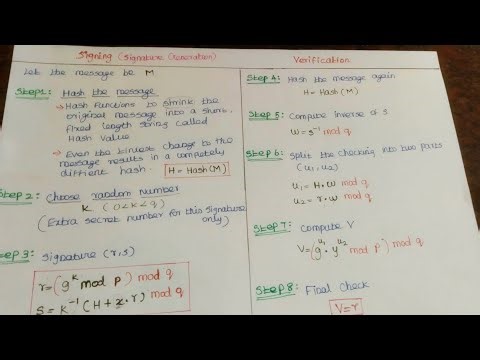 Signing (Signature Generation)
Let the message be M
Step1: Hash the message
→ Hash functions to shrink the
original message into a short,
fixed length string called
Hash Value
→ Even the tiniest change to the
message results in a completely
diffrent hash. H = Hash(M)
Step 2: choose random number
k (0<k<q)
(Extra secret number for this signature
only)
Step 3: signature (r,s)
r = (g^k mod p) mod q
s = k⁻¹ (H + x·r) mod q
Verification
Step 4: Hash the message again
H = Hash(M)
Step 5: Compute Inverse of s
w = s⁻¹ mod q
Step 6: split the checking into two parts
(u₁, u₂)
u₁ = H·w mod q
u₂ = r·w mod q
Step 7: compute V
V = (g^u₁ · y^u₂ mod p) mod q
Step 8: Final check
V=r